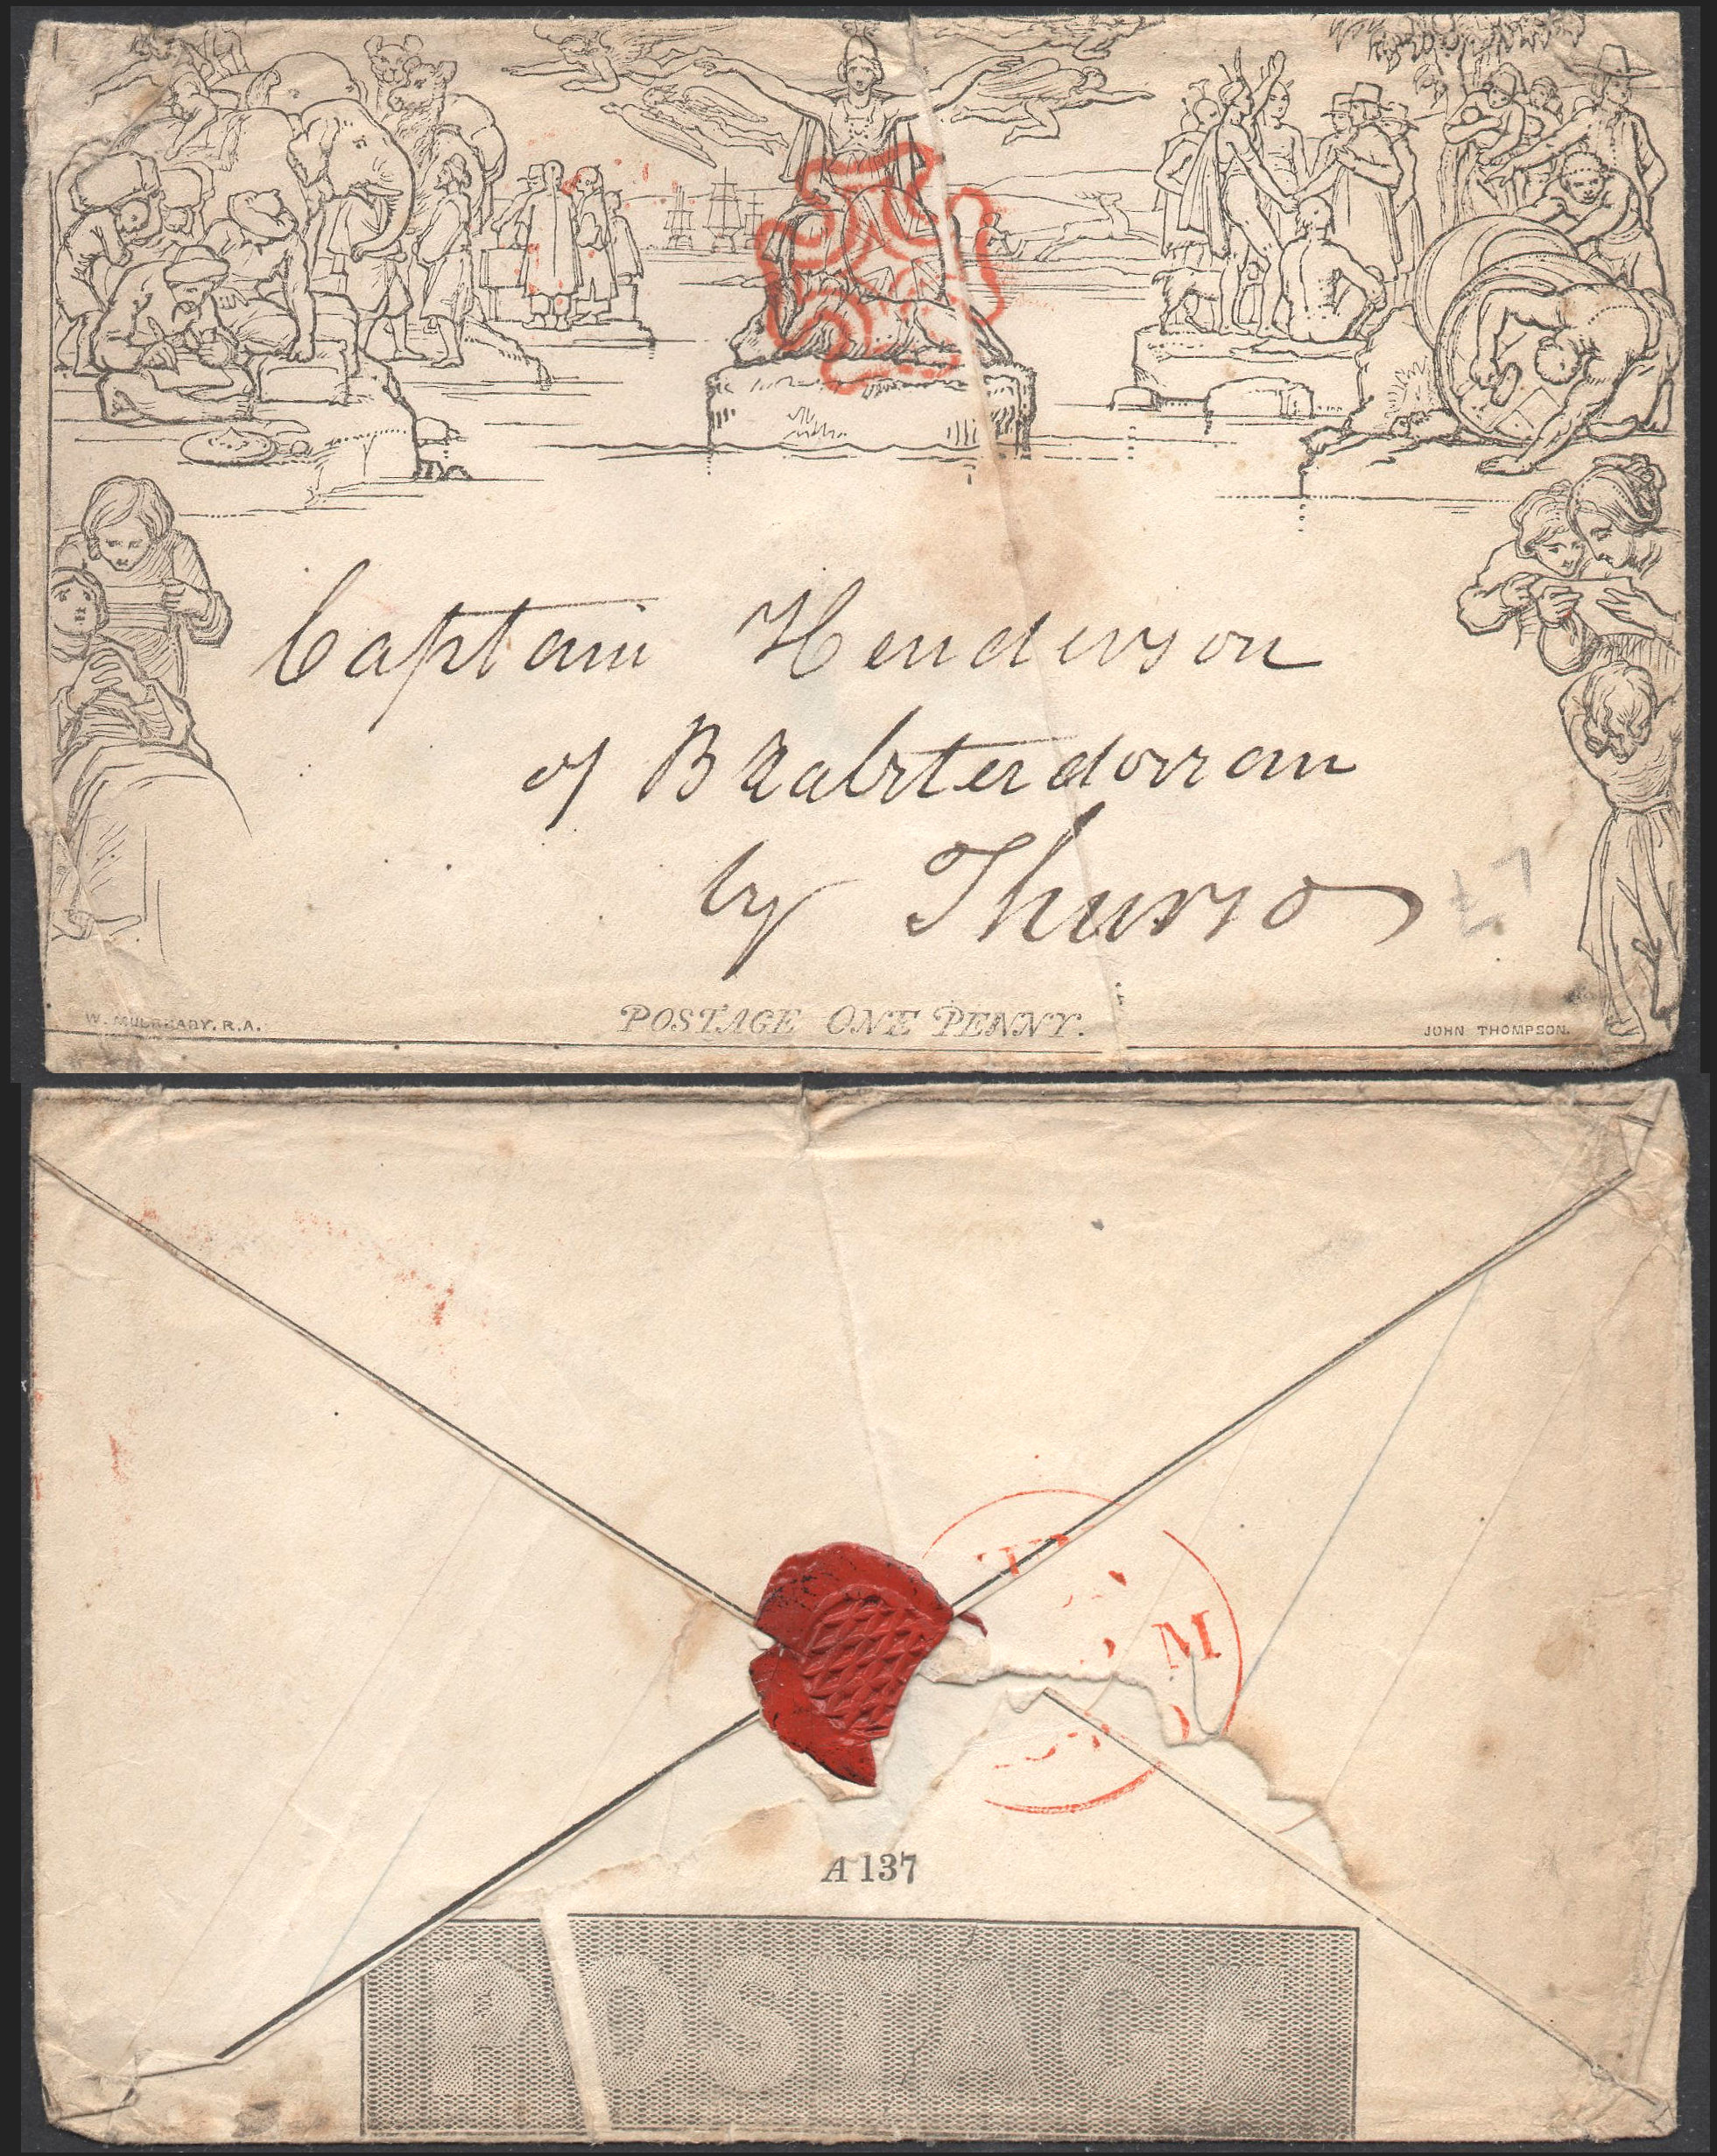 Captain Henderson
of Bbabsterdorran
by Thurso
£7
W. MULREADY, R.A.
POSTAGE ONE PENNY.
JOHN THOMPSON.
M
A 137
POSTAGE